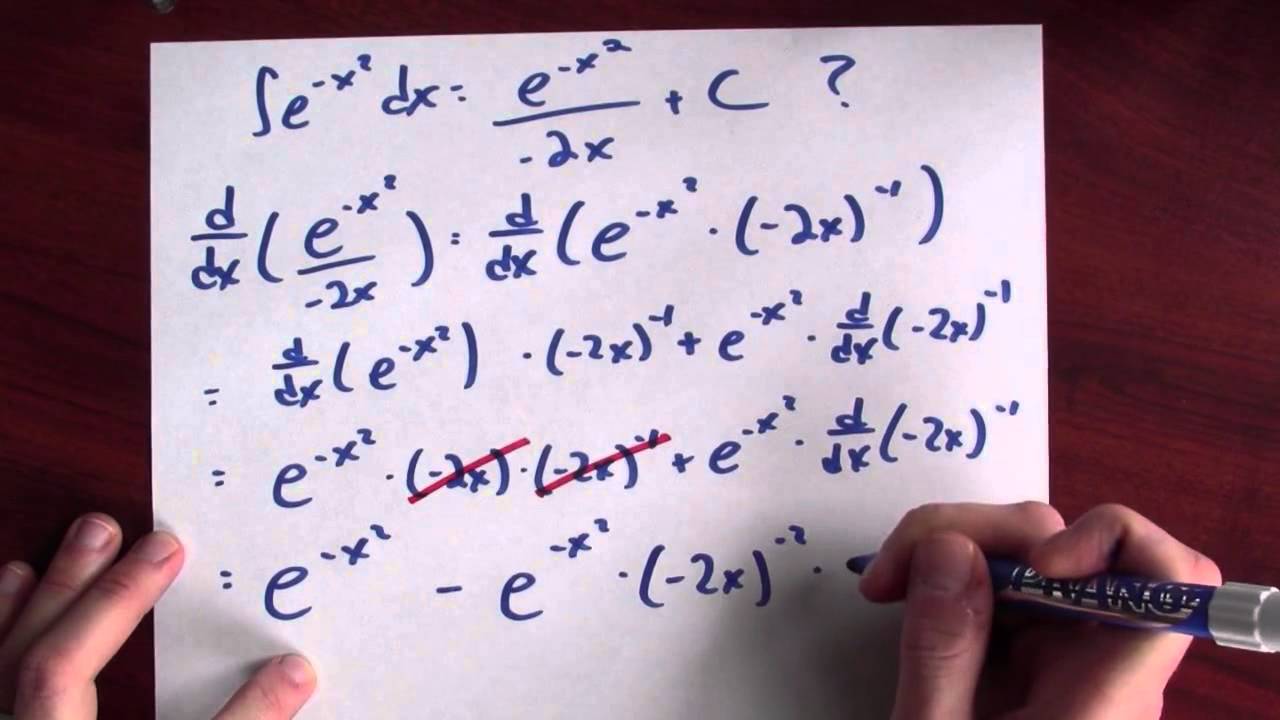 ∫e^{-x²} dx = e^{-x²}/(-2x) + C ?
d/dx(e^{-x²}/(-2x)) = d/dx(e^{-x²} · (-2x)^{-1})
= d/dx(e^{-x²}) · (-2x)^{-1} + e^{-x²} · d/dx(-2x)^{-1}
= e^{-x²} · (-2x) · (-2x)^{-1} + e^{-x²} · d/dx(-2x)^{-1}
= e^{-x²} - e^{-x²} · (-2x)^{-2} ·
PRANG